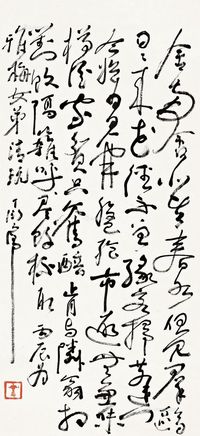 舍南舍北皆春水但見群鷗
日日來花徑不曾緣客掃蓬門
今始為君開盤飧市遠無兼味
樽酒家貧只舊醅肯與鄰翁相
對飲隔籬呼盡餘杯取丙辰為
雅梅女弟清玩